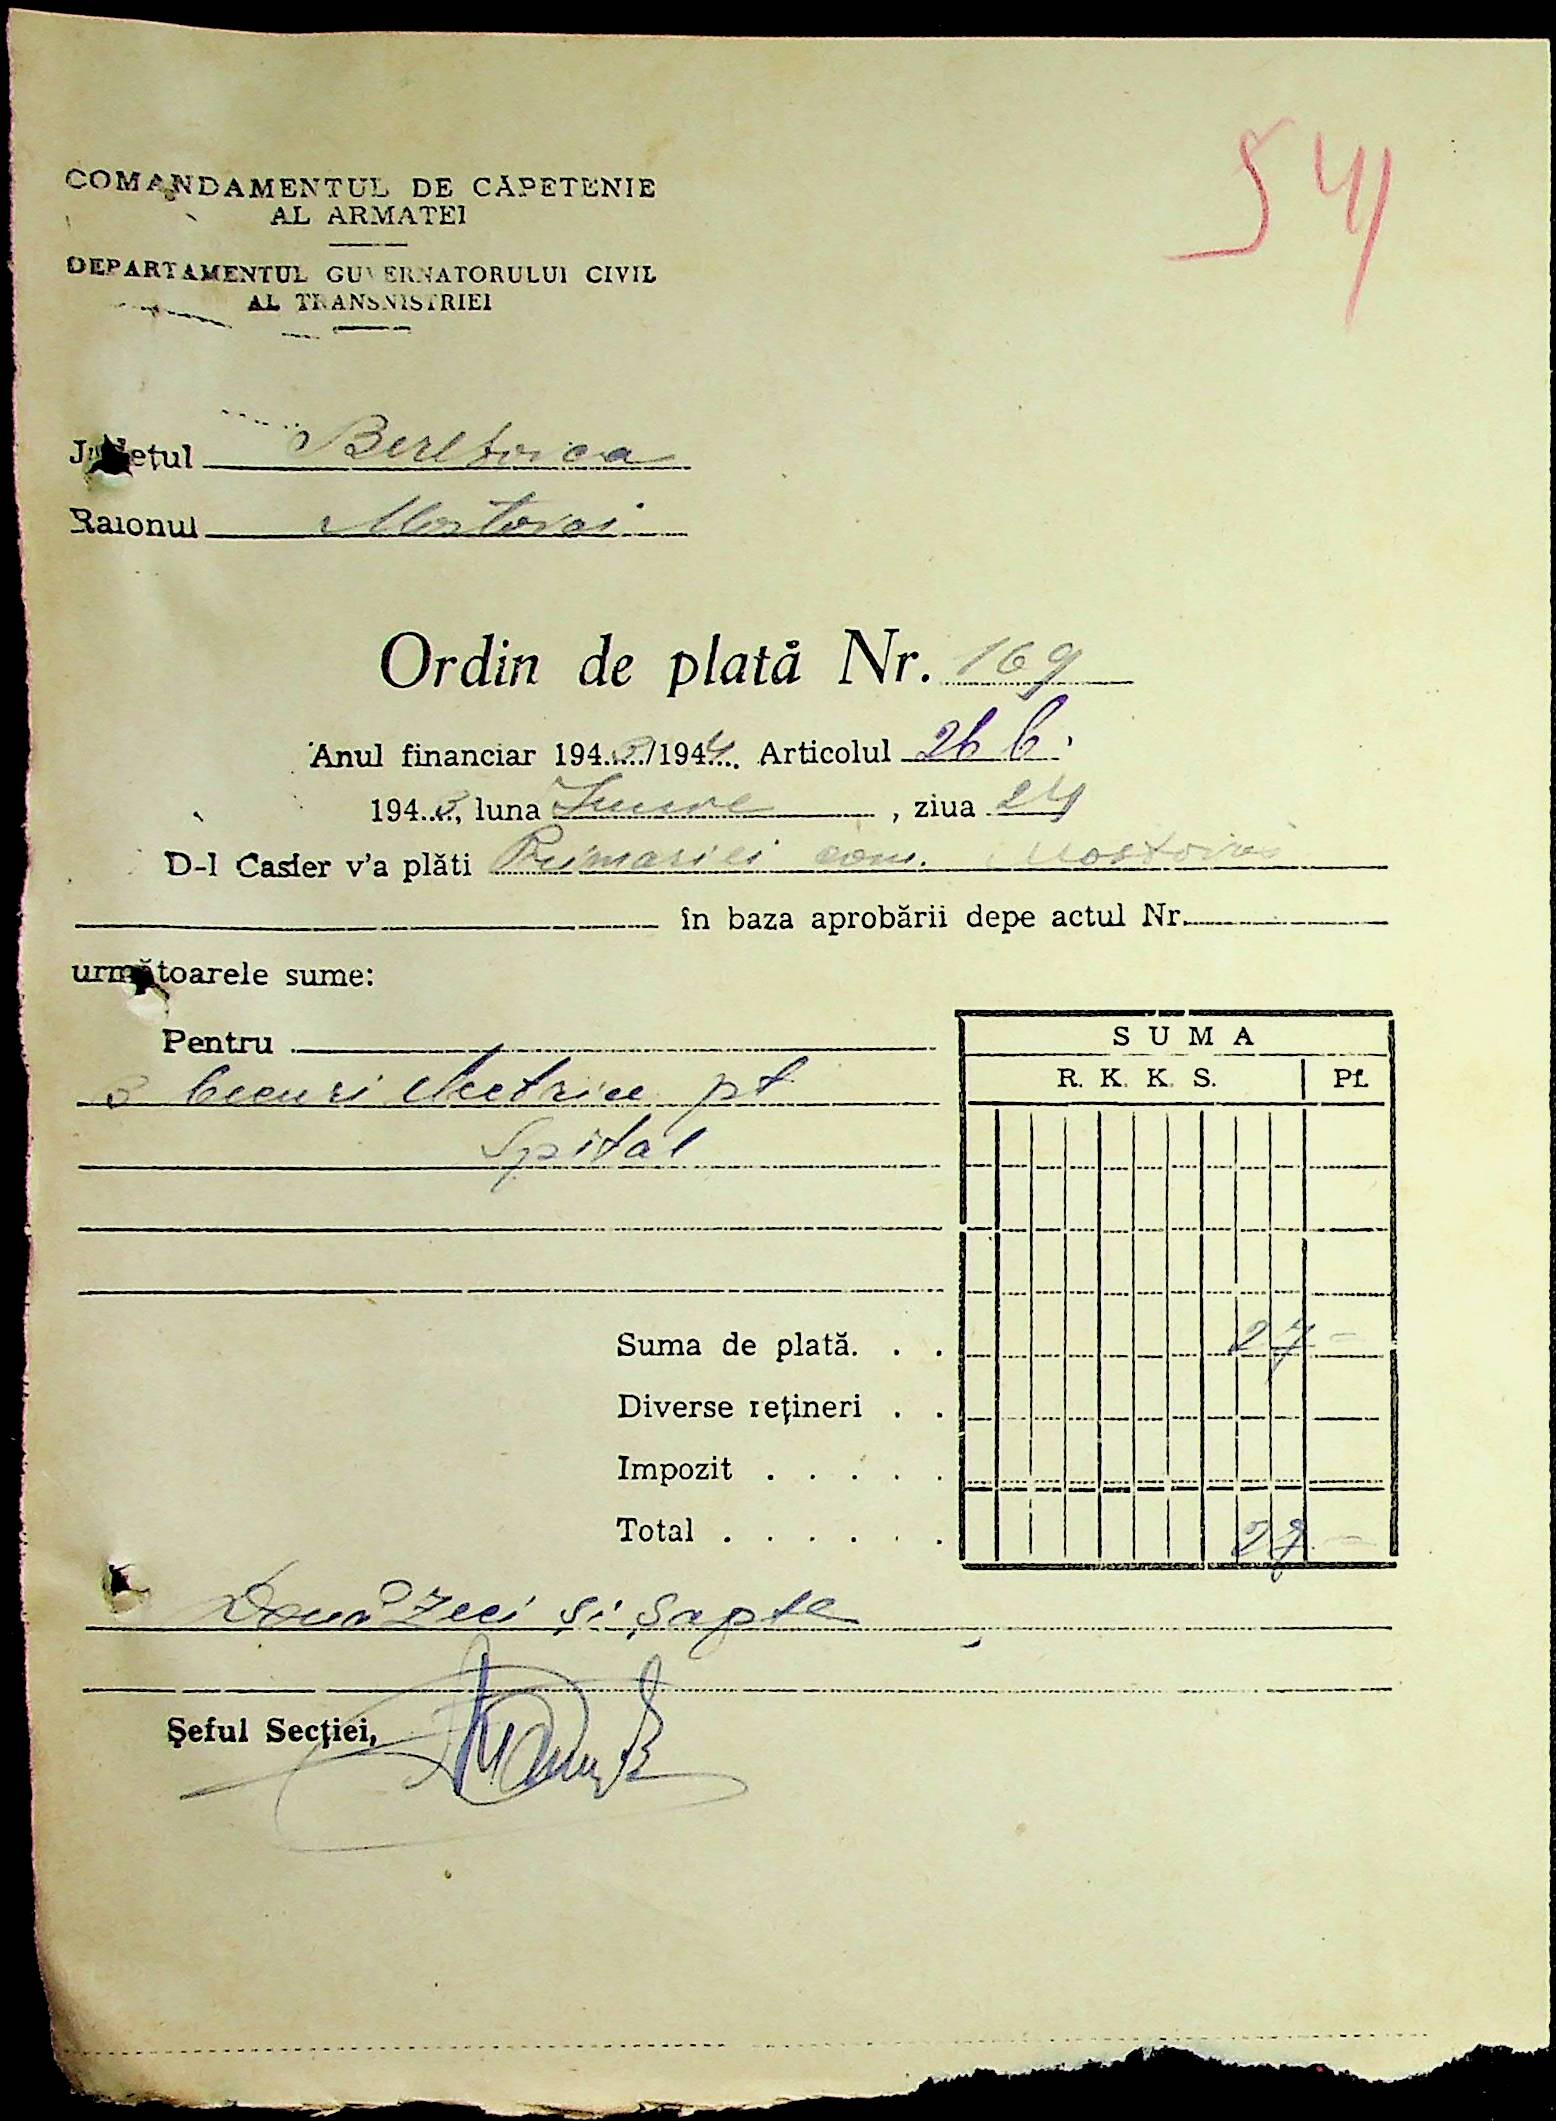 541
COMANDAMENTUL DE CĂPETENIE
AL ARMATEI
DEPARTAMENTUL GUVERNATORULUI CIVIL
AL TRANSNISTRIEI
Județul Berezovca
Raionul Mostovoi
Ordin de plată Nr. 169
Anul financiar 1943/1944. Articolul 26 b.
1943, luna Iunie, ziua 24
D-l Casier v'a plăti Primariei com. Mostovoi
în baza aprobării depe actul Nr.
următoarele sume:
Pentru
3 becuri electrice pt
Spital
SUMA
R. K. K. S. Pf.
Suma de plată. . . 27 -
Diverse rețineri . .
Impozit . . . . .
Total . . . . . . 27 -
Două zeci și șapte
Șeful Secției,